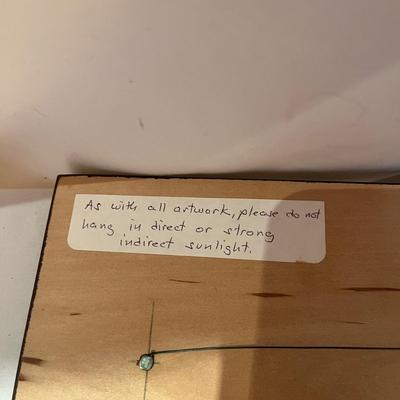 As with all artwork, please do not
hang in direct or strong
indirect sunlight.